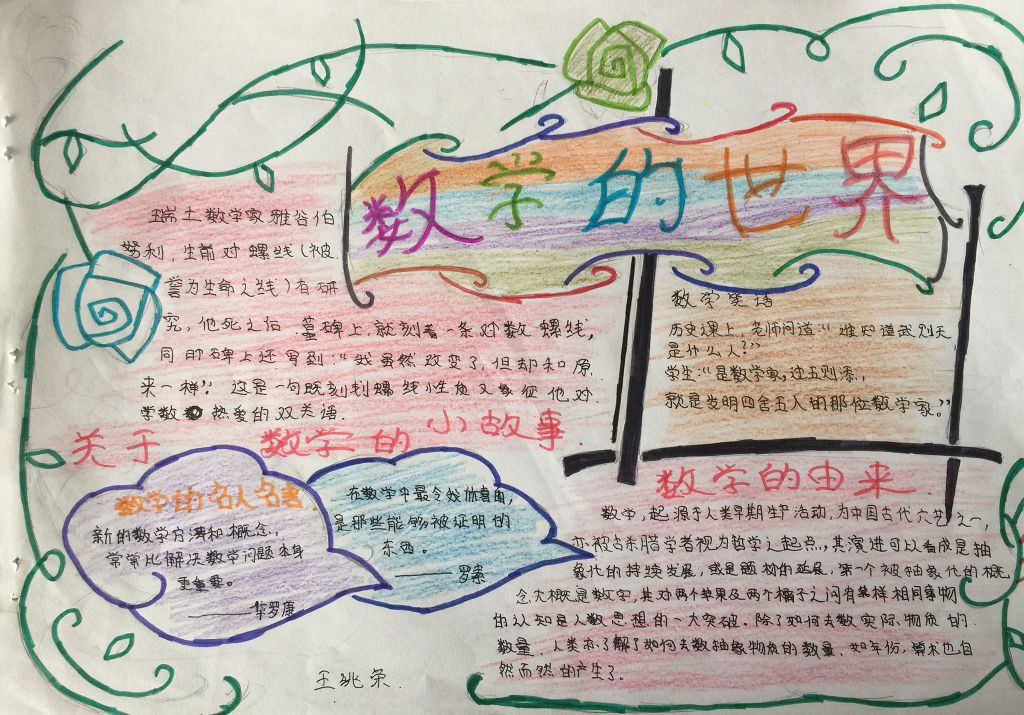 数学的世界
瑞士数学家雅谷伯
努利,生前对螺线(被
誉为生命之线)有研
究,他死之后.墓碑上就刻着一条对数螺线,
同时碑上还写到:“我虽然改变了,但却和原
来一样”.这是一句既刻划螺线性质又象征他对
学数热爱的双关语.
关于数学的小故事.
数学笑话
历史课上,老师问道:“谁知道武则天
是什么人?”
学生:“是数学家,过五则添,
就是发明四舍五入的那位数学家。”
数学的名人名言.
新的数学方法和概念,
常常比解决数学问题本身
更重要。
——华罗康
在数学中最令我欣喜的,
是那些能够被证明的
东西。
——罗素
数学的由来.
数学,起源于人类早期生产活动,为中国古代六艺之一,
亦被古希腊学者视为哲学之起点,其演进可以看成是抽
象化的持续发展,或是题材的延展,第一个被抽象化的概
念大概是数字,其对两个苹果及两个橘子之间有某样相同事物
的认知是人数思想的一大突破。除了如何去数实际物质的
数量,人类亦了解了如何去数抽象物质的数量.如年份,算术也自
然而然的产生了。